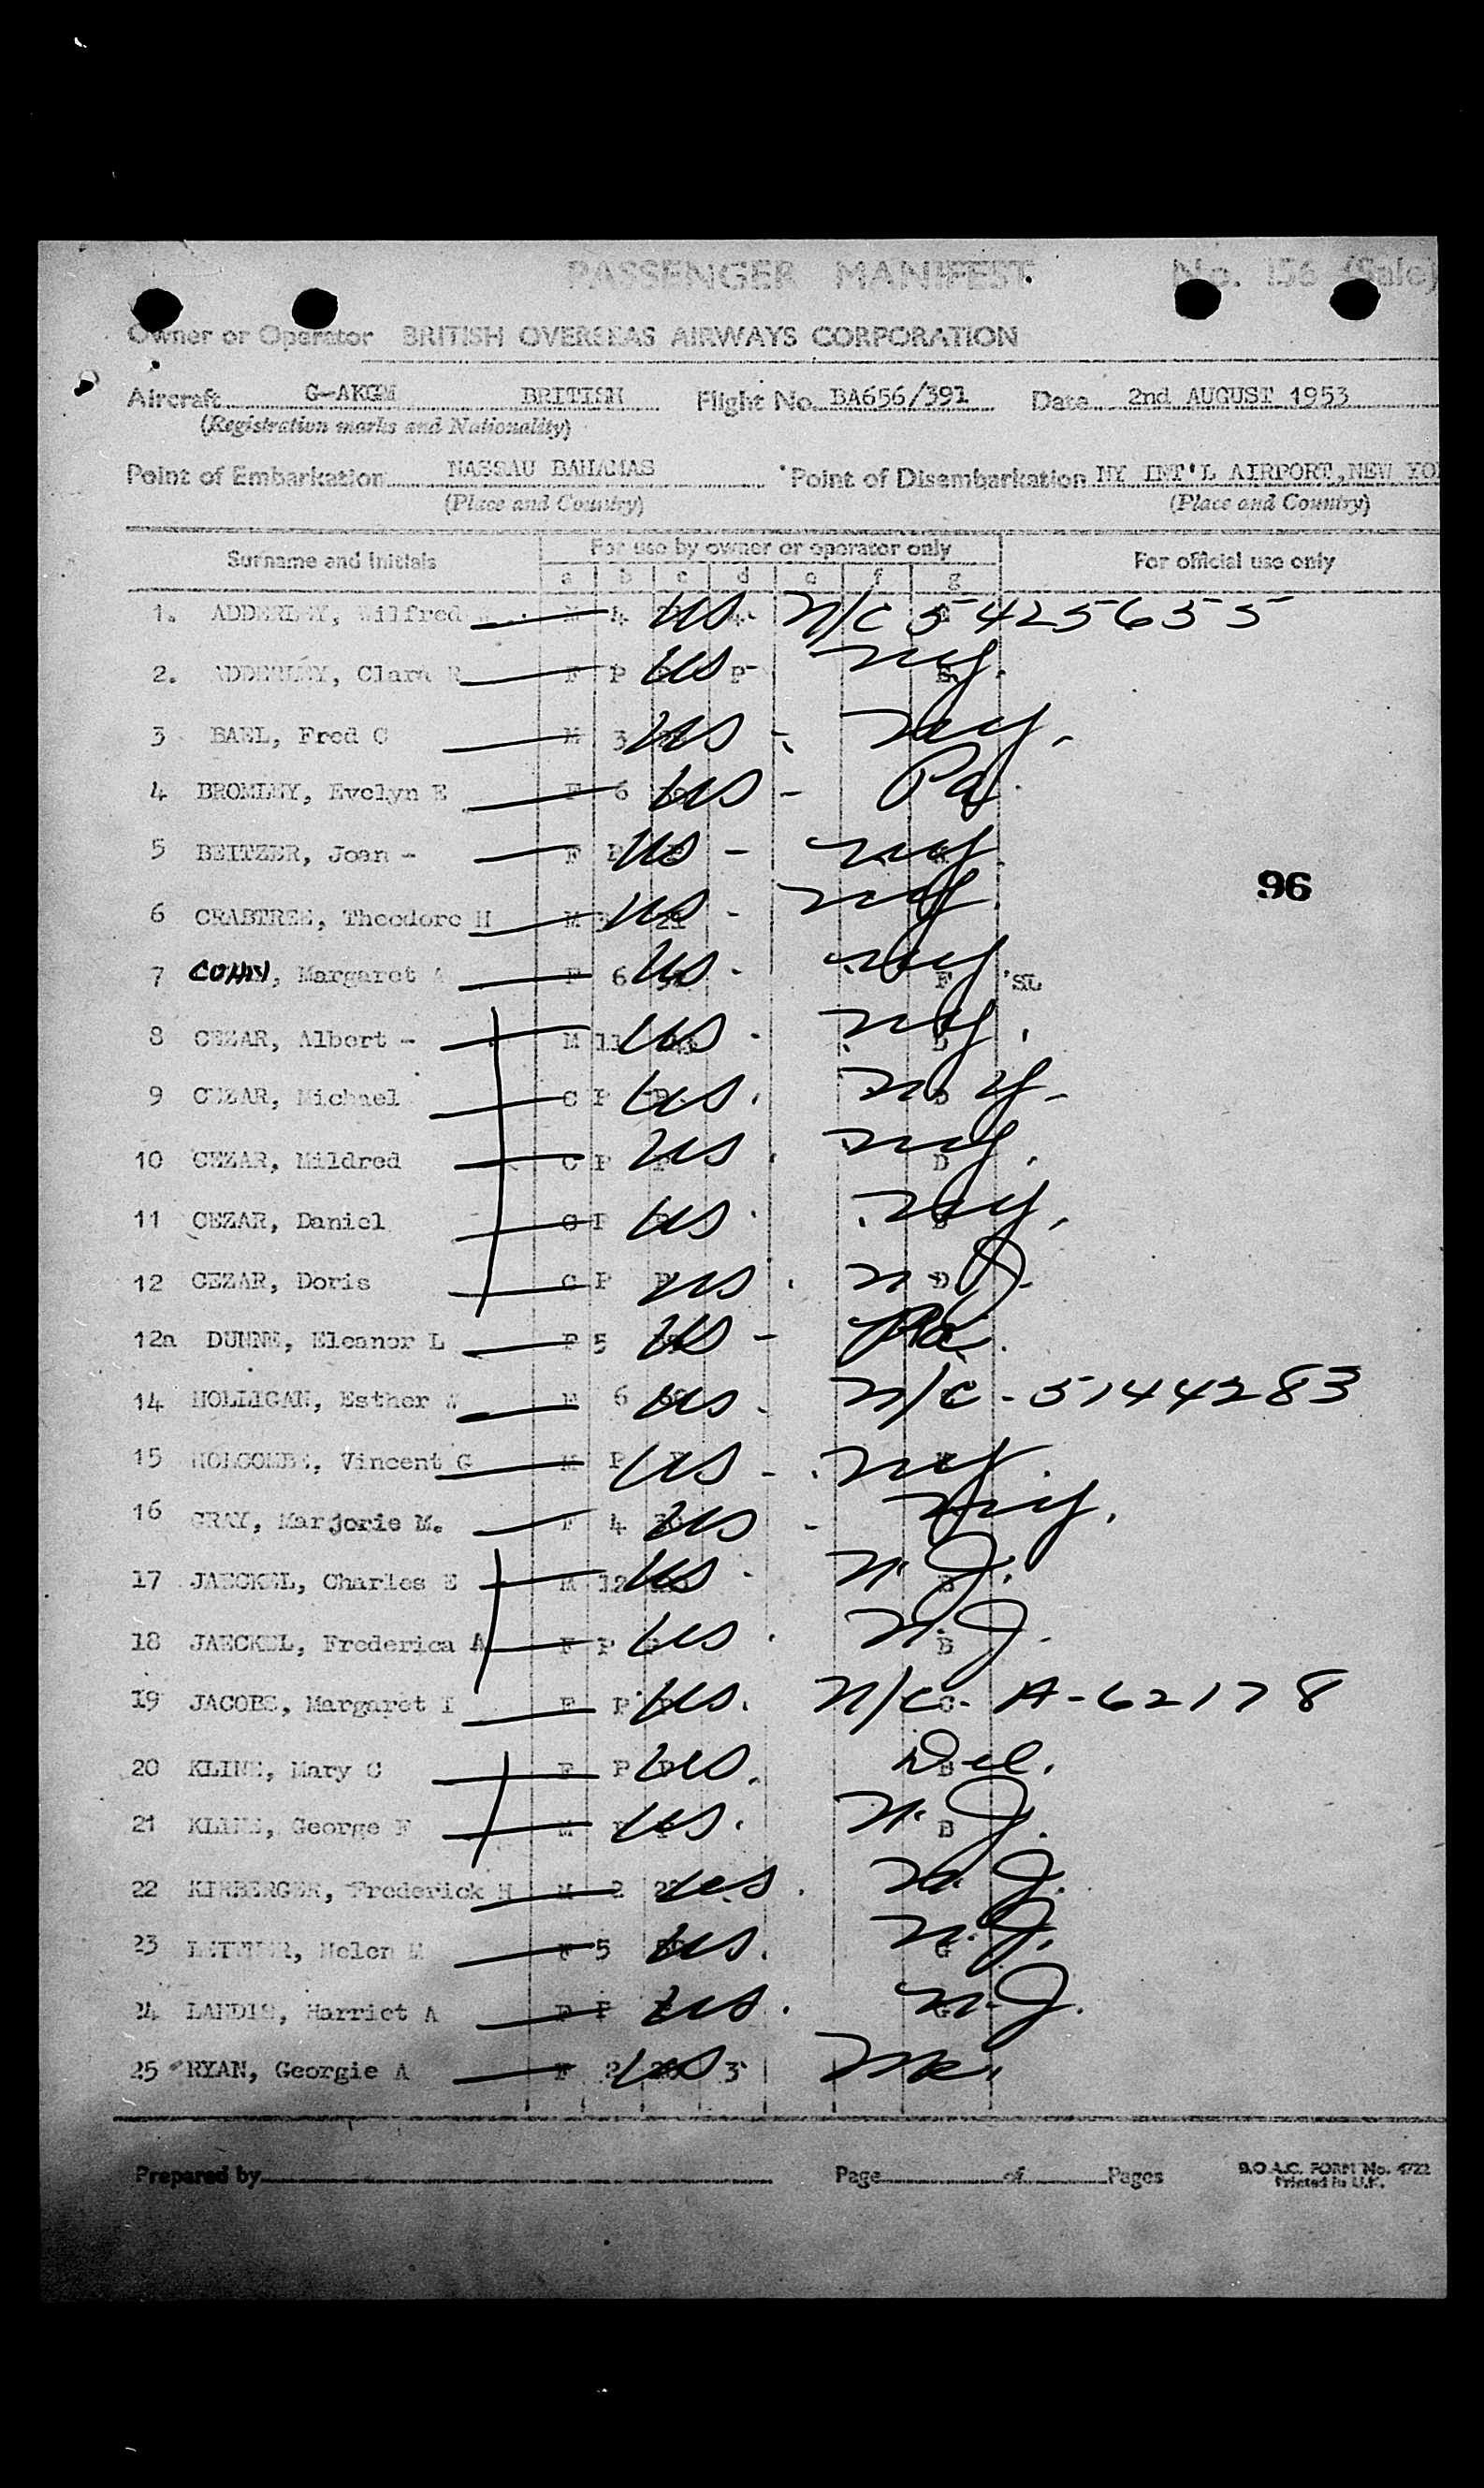 PASSENGER MANIFEST. No. 156 (Sale)
Owner or Operator BRITISH OVERSEAS AIRWAYS CORPORATION
Aircraft G-AKGM BRITISH Flight No. BA656/391 Date 2nd AUGUST 1953
(Registration marks and Nationality)
Point of Embarkation NASSAU BAHAMAS Point of Disembarkation NY INT'L AIRPORT, NEW YO
(Place and Country) (Place and Country)
Surname and Initials For use by owner or operator only For official use only
a b c d e f g
1. ADDERLEY, Wilfred M 4 US 4. N/C 5425655
2. ADDERLEY, Clara F P US P NY.
3 BAEL, Fred C M 3 US - NY.
4 BROMLEY, Evelyn E F 6 US - Pa.
5 BEITZER, Joan - F P US - NY
6 CRABTREE, Theodore H M US - NY.
96
7 COHN, Margaret F 6 US. NY F SL
8 CEZAR, Albert - M 11 US. NY. D
9 CEZAR, Michael C P US. NY - D
10 CEZAR, Mildred C P US. NY. D
11 CEZAR, Daniel C P US. NY.
12 CEZAR, Doris C P US. D
12a DUNNE, Eleanor L F 5 US - Pa.
14 HOLLIGAN, Esther 6 US - N/C - 5144283
15 HOLCOMBE, Vincent G M P US - NY.
16 GRAY, Marjorie M. F 4 US - NY.
17 JAECKEL, Charles E M 12 US - N.J. B
18 JAECKEL, Frederica A F P US. N.J. B
19 JACOBS, Margaret I F P US. N/C - A-62178
20 KLINE, Mary C F P US. Del. B
21 KLINE, George F M P US. N.J. B
22 KIRBERGER, Frederick H M 2 US. N.J.
23 Helen M F 5 US. N.J. G
24 LANDIS, Harriet A F P US. N.J. G
25 RYAN, Georgie A F 2 US 3 Me.
Prepared by Page of Pages B.O.A.C. FORM No. 4722
Printed in U.K.